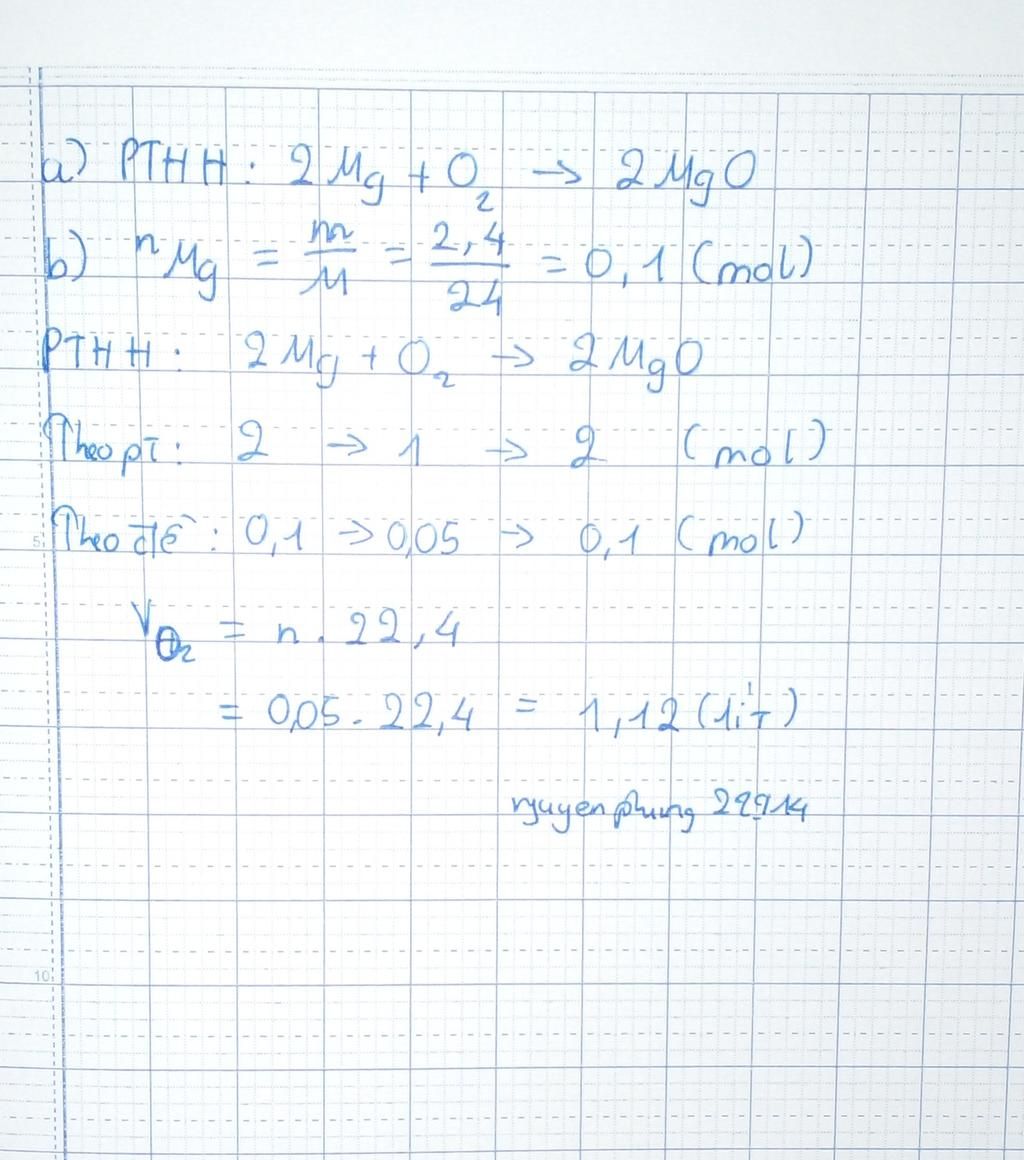 a) PTHH: 2Mg + O₂ → 2MgO
b) nMg = m/M = 2,4/24 = 0,1 (mol)
PTHH: 2Mg + O₂ → 2MgO
Theo pt: 2 → 1 → 2 (mol)
Theo đề: 0,1 → 0,05 → 0,1 (mol)
V O₂ = n . 22,4
= 0,05 . 22,4 = 1,12 (lít)
nguyenphung
5
10